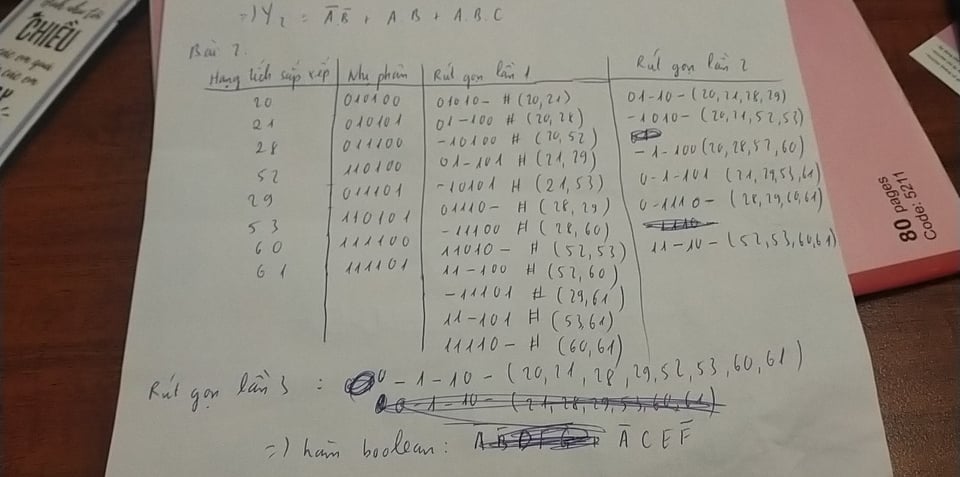 =) Y₂ = A̅.B̅ + A.B + A.B.C
CHIỀU
Bài 2.
Hạng tích sắp xếp | Nhị phân | Rút gọn lần 1 | Rút gọn lần 2
20 | 010100 | 01010- # (20,21) | 01-10- (20,21,28,29)
21 | 010101 | 01-100 # (20,28) | -1010- (20,21,52,53)
28 | 011100 | -10100 # (20,52) | -1-100 (20,28,52,60)
52 | 110100 | 01-101 # (21,29) | 0-1-101 (21,29,53,61)
29 | 011101 | -10101 # (21,53) | 0-1110- (28,29,60,61)
53 | 110101 | 01110- # (28,29)
60 | 111100 | -11100 # (28,60) | 11-10- (52,53,60,61)
61 | 111101 | 11010- # (52,53)
11-100 # (52,60)
-11101 # (29,61)
11-101 # (53,61)
11110- # (60,61)
Rút gọn lần 3 : 0-1-10- (20,21,28,29,52,53,60,61)
0-1-10-(21,28,29,53,60,61)
=) hàm boolean: A̅ C E F̅
80 pages
Code: 5211